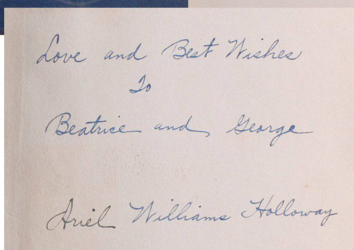 Love and Best Wishes
To
Beatrice and George
Ariel Williams Holloway